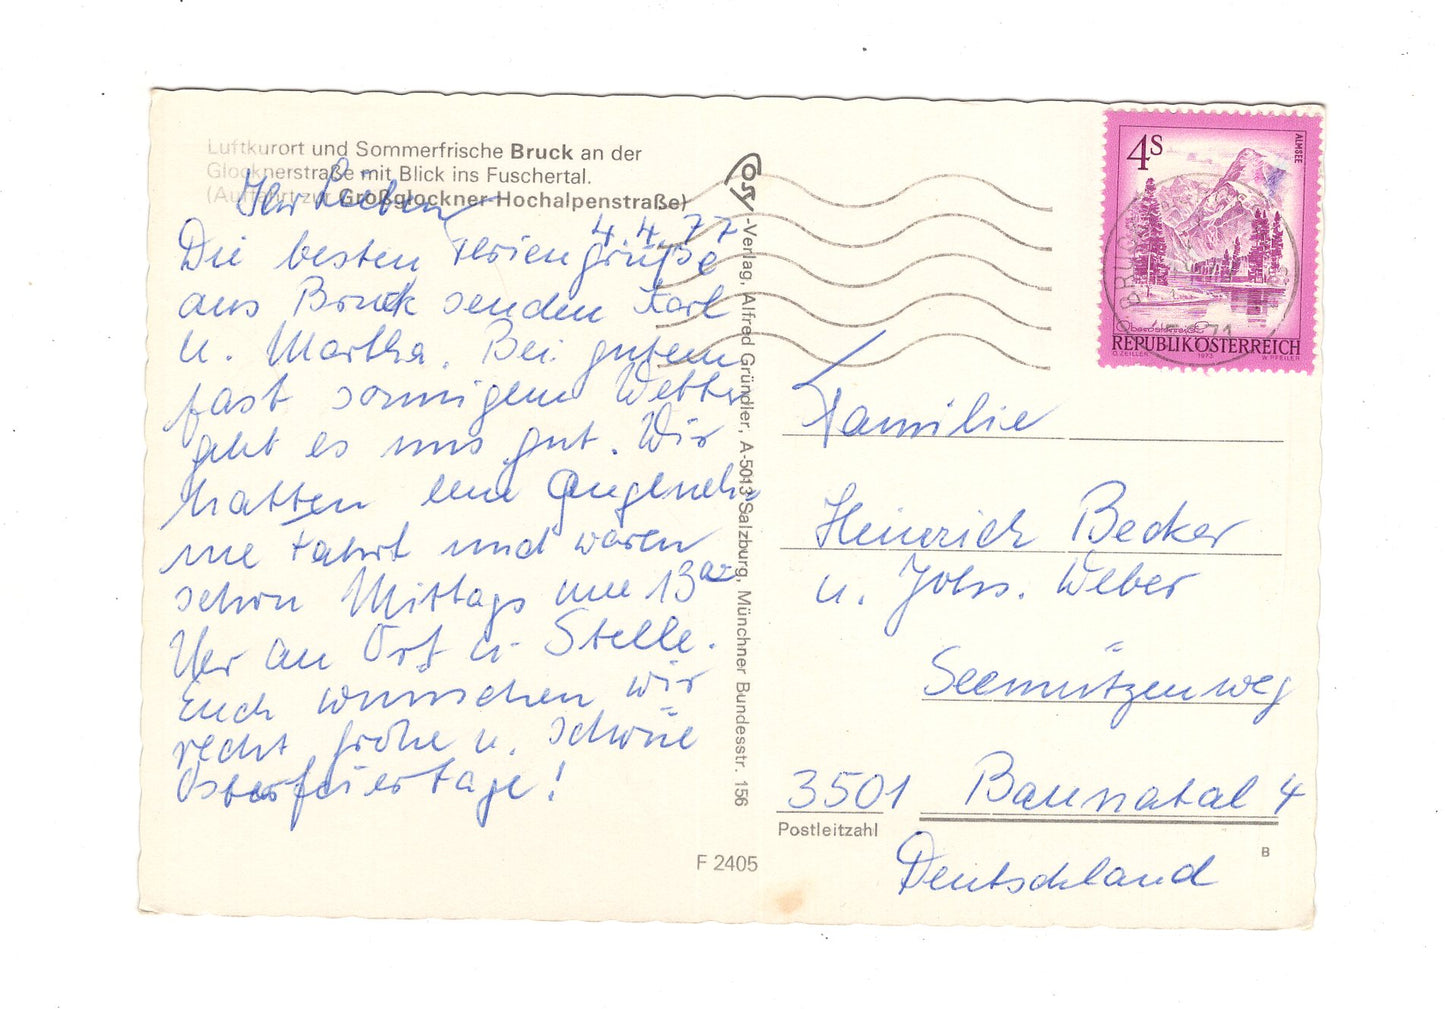 Luftkurort und Sommerfrische Bruck an der
Glocknerstraße mit Blick ins Fuschertal.
(Auffahrt zur Großglockner-Hochalpenstraße)
Ihr Lieben
4.4.77
Die besten Feriengrüße
aus Bruck senden Karl
u. Martha. Bei gutem
fast sonnigem Wetter
geht es uns gut. Wir
hatten eine Angeneh
me Fahrt und waren
schon Mittags um 13
Uhr an Ort u. Stelle.
Euch wünschen wir
recht frohe u. schöne
Osterfeiertage!
-Verlag, Alfred Gründler, A-5013 Salzburg, Münchner Bundesstr. 156
F 2405
4S
ALMSEE
Oberösterreich
REPUBLIK ÖSTERREICH
O. ZEILLER 1973 W. PFEILER
Familie
Heinrich Becker
u. Johs. Weber
Seemützenweg
3501 Baunatal 4
Postleitzahl
Deutschland
B